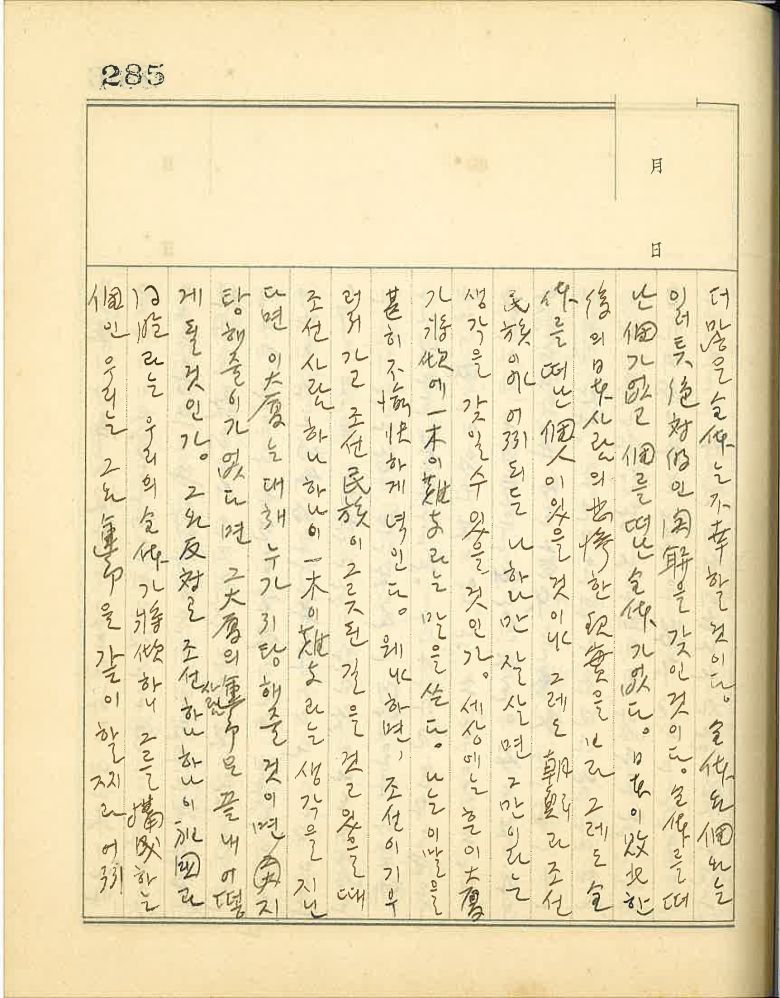 285
月
日
더 많은 全体는 不幸할 것이다. 全体와 個와는
일러 듯 絶対的인 関聯을 갖인 것이다. 全体를 떠
난 個가 없고 個를 떠난 全体가 없다. 日本이 敗北한
後의 日本사람의 悲惨한 現實을 보라 그레도 全
体를 떠난 個人이 있을 것이냐 그레도 朝鮮과 조선
民族이야 어찌되든 나 하나만 잘 살면 그만이라는
생각을 갖일 수 있을 것인가. 세상에는 흔이 大廈
가 將傾에 一木이 難支라는 말을 쓴다. 나는 이 말을
甚히 不愉快하게 녁인다. 웨냐하면, 조선이 기우
러져가고 조선 民族이 그릇된 길을 것고 있을 때
조선 사람 하나 하나이 一木이 難支라는 생각을 지닌
다면 이 大廈는 대체 누가 지탕해줄 것이면 지
탕해줄이가 없다면 그 大廈의 運命은 끝내 어떻
게 될 것인가. 그와 反対로 조선 사람 하나 하나이 祖國과
같이라는 우리의 全体가 將傾하니 그를 構成하는
個인 우리는 그와 運命을 같이 할찌라 어찌